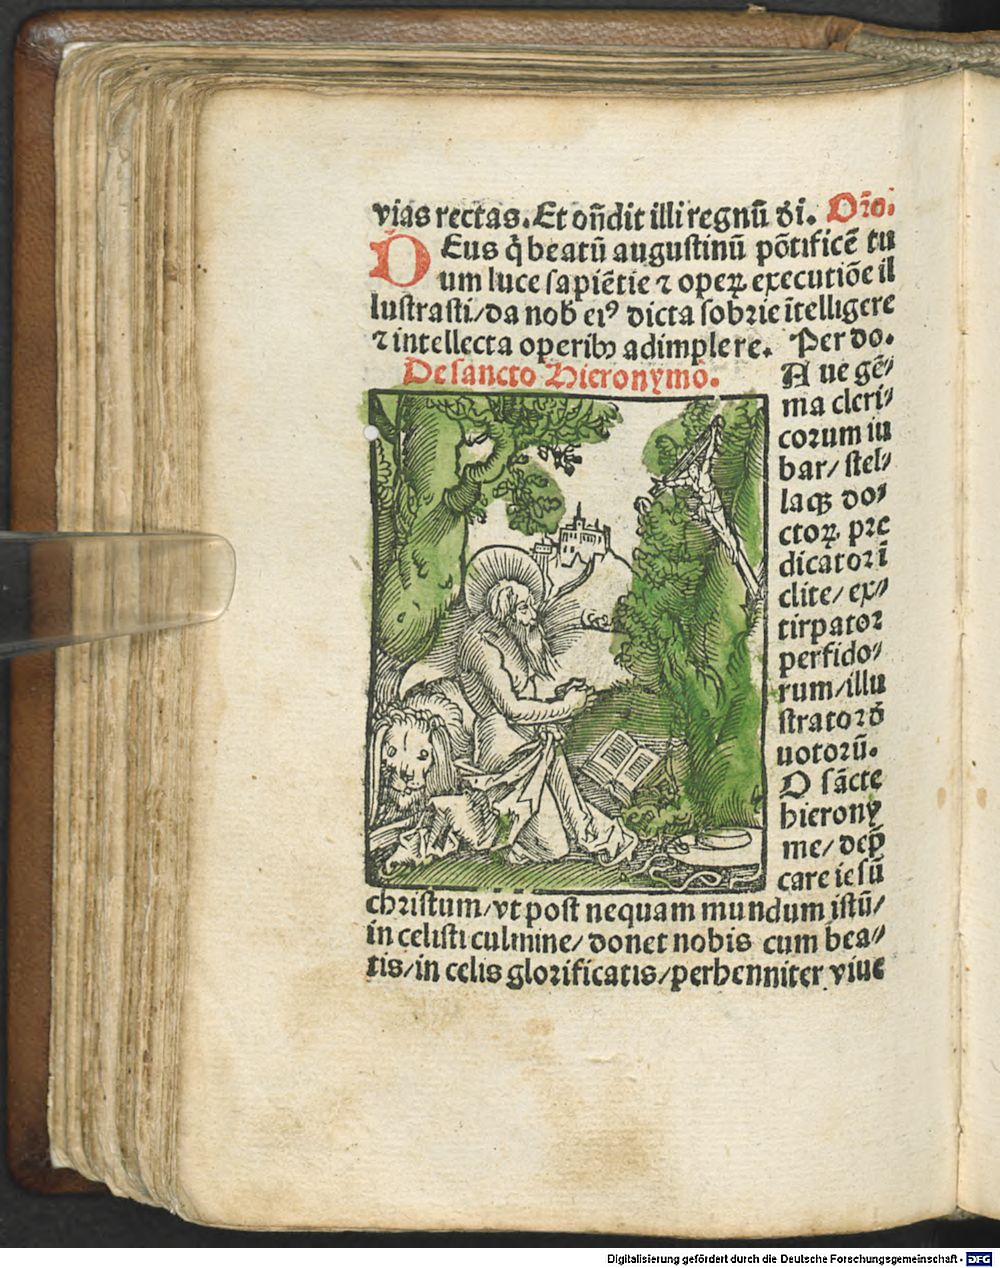 vias rectas. Et on̄dit illi regnū d̄i. Or̄o.
DEus q̇ beatū augustinū pōtificē tu
um luce sapiētie ⁊ operꝝ executiōe il
lustrasti/da nob̄ eiꝰ dicta sobrie ītelligere
⁊ intellecta operibꝫ adimplere. Per do.
De sancto Hieronymo.
Aue gē⸗
ma cleri⸗
corum iu
bar/ stel⸗
laqꝫ do⸗
ctorꝝ pre
dicator ī
clite/ ex⸗
tirpator
perfido⸗
rum/illu
strator d̄
uotorū.
O sācte
hierony
me/ dep̄
care iesū
christum/vt post nequam mundum istū/
in celisti culmine/ donet nobis cum bea⸗
tis/in celis glorificatis/perhenniter viue
Digitalisierung gefördert durch die Deutsche Forschungsgemeinschaft - DFG